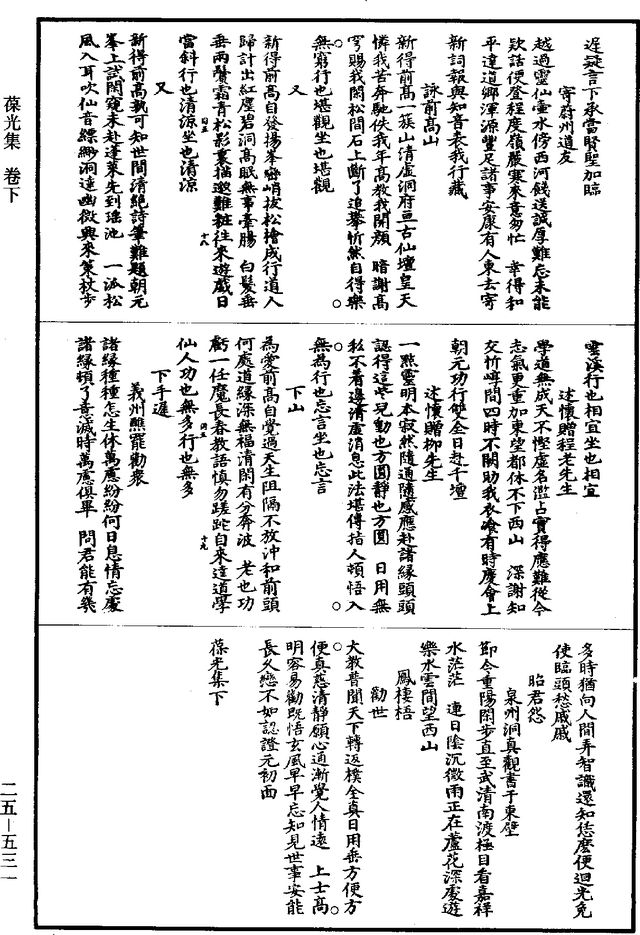 葆光集 卷下
遲疑言下承當賢聖加臨
寄蔚州道友
越過靈仙壺水傍西河餞送誠厚難忘未能
欵話便登程度嶺嚴寒來意匆忙 幸得和
平達道鄉渾源豐足諸事安康有人東去寄
新詞報與知音表我行藏
詠前高山
新得前高一簇山清虛洞府亘古仙壇皇天
憐我苦奔馳佚我年高教我開顔 暗謝高
穹賜我閑松間石上斷了追攀忻然自得樂
無窮行也堪觀坐也堪觀
又
新得前高自發揚峯巒峭拔松檜成行道人
歸計出紅塵碧洞高眠無事牽腸 白髮垂
垂兩鬢霜青松影裏摛邈難粧往來遊戲日
當斜行也清涼坐也清涼
又
新得前高孰可知世間清絕詩筆難題朝元
峯上試閑窺未赴蓬萊先到瑤池 一派松
風入耳吹仙音縹緲洞遠幽微興來策杖步
雲溪行也相宜坐也相宜
述懷贈程老先生
學道無成天不慳虛名濫占實得應難從今
志氣更重加東望都休不下西山 深謝知
交忻㟴間四時不闕助我衣飡有時慶會上
朝元功行雙全日赴千壇
述懷贈柳先生
一點靈明本寂然隨通隨感應赴諸緣頭頭
認得這些兒動也方圓靜也方圓 日用無
私不着邊清虛消息此法堪傳括人頓悟入
無為行也忘言坐也忘言
下山
為愛前高自覺過天生阻隔不放沖和前頭
何處道緣深無福清閑有分奔波 老也功
虧一任魔長春教語慎勿蹉跎自來達道學
仙人功也無多行也無多
下手遲
義州醮罷勸衆
諸緣種種怎生休萬慮紛紛何日息情忘處
諸緣頓了意滅時萬慮俱畢 問君能有幾
多時猶向人間弄智識還知恁麽便迴光免
使臨頭愁戚戚
昭君怨
泉州洞真觀書于東壁
節令重陽閑步直至武清南渡極目看嘉祥
水茫茫 連日陰沉微雨正在蘆花深處遊
樂水雲間望西山
鳳棲梧
勸世
大教普聞天下轉返樸全真日用垂方便方
便真慈清靜願心通漸覺人情遠 上士高
明容易勸既悟玄風早早忘知見世事安能
長久戀不如認證元初面
葆光集下
二五—五三一